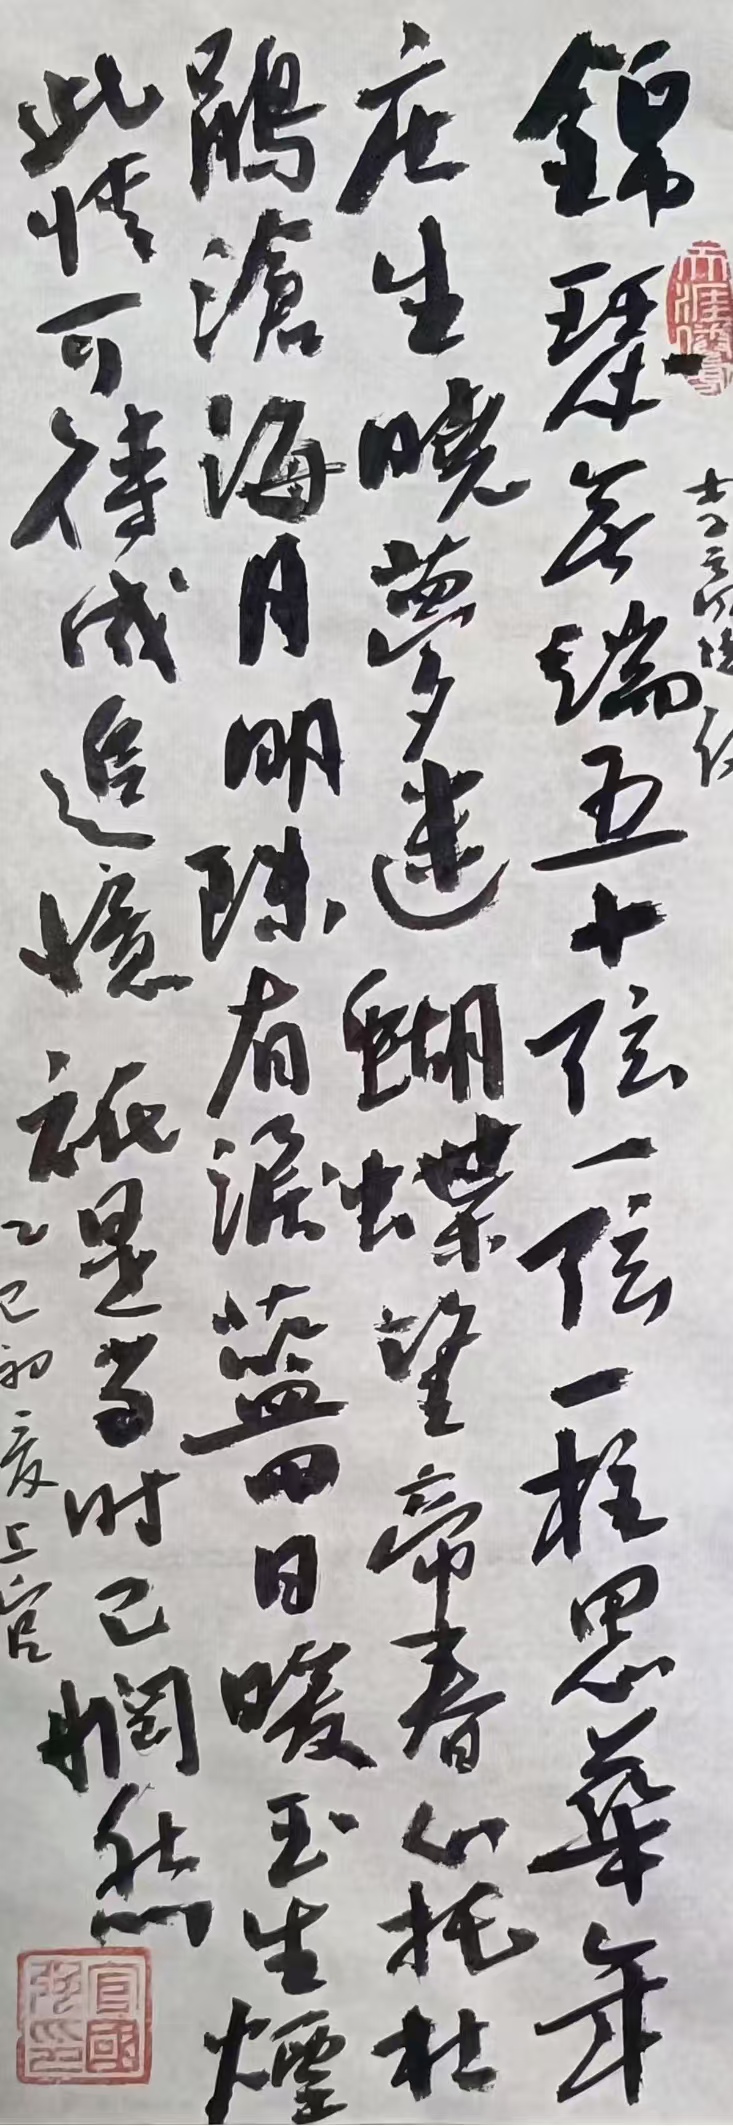 錦瑟无端五十弦一弦一柱思華年
庄生曉夢迷蝴蝶望帝春心托杜
鵑滄海月明珠有淚藍田日暖玉生煙
此情可待成追憶祗是当时已惘然
乙巳初夏上官